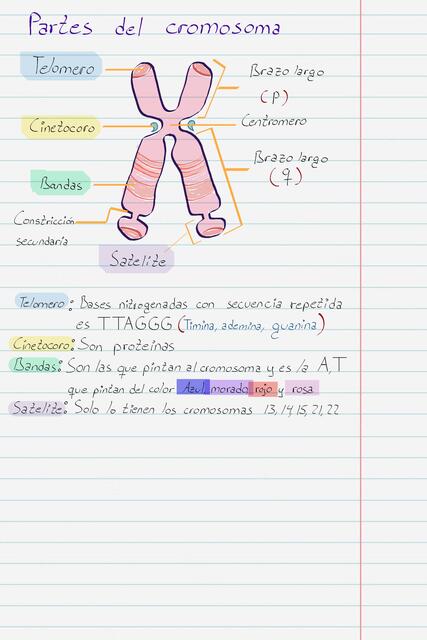 Partes del cromosoma
Telomero
Brazo largo
(p)
Cinetocoro
Centromero
Brazo largo
(q)
Bandas
Constricción
secundaria
Satelite
Telomero: Bases nitrogenadas con secuencia repetida
es TTAGGG (Timina, ademina, guanina)
Cinetocoro: Son proteinas
Bandas: Son las que pintan al cromosoma y es la A,T
que pintan del color Azul, morado, rojo y rosa
Satelite: Solo lo tienen los cromosomas 13, 14, 15, 21, 22